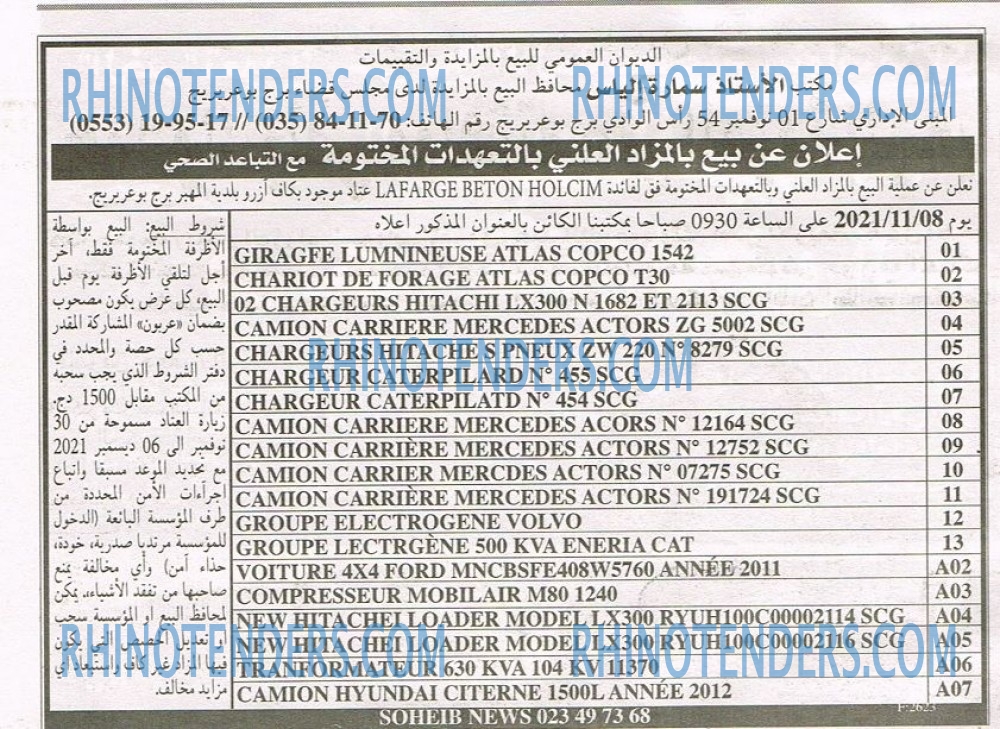 الديوان العمومي للبيع بالمزايدة والتقييمات
مكتب الأستاذ سمارة إلياس محافظ البيع بالمزايدة لدى مجلس قضاء برج بوعريريج
المبنى الإداري شارع 01 نوفمبر 54 رأس الوادي برج بوعريريج رقم الهاتف: 70-11-84 (035) // 17-95-19 (0553)
إعلان عن بيع بالمزاد العلني بالتعهدات المختومة مع التباعد الصحي
نعلن عن عملية البيع بالمزاد العلني وبالتعهدات المختومة فق لفائدة LAFARGE BETON HOLCIM عتاد موجود بكاف أزرو بلدية المهير برج بوعريريج.
يوم 2021/11/08 على الساعة 0930 صباحا بمكتبنا الكائن بالعنوان المذكور اعلاه
01 GIRAGFE LUMNINEUSE ATLAS COPCO 1542
02 CHARIOT DE FORAGE ATLAS COPCO T30
03 02 CHARGEURS HITACHI LX300 N 1682 ET 2113 SCG
04 CAMION CARRIERE MERCEDES ACTORS ZG 5002 SCG
05 CHARGEURS HITACHE S PNEUX ZW 220 N° 8279 SCG
06 CHARGEUR CATERPILARD N° 455 SCG
07 CHARGEUR CATERPILATD N° 454 SCG
08 CAMION CARRIERE MERCEDES ACORS N° 12164 SCG
09 CAMION CARRIÈRE MERCEDES ACTORS N° 12752 SCG
10 CAMION CARRIER MERCDES ACTORS N° 07275 SCG
11 CAMION CARRIÈRE MERCEDES ACTORS N° 191724 SCG
12 GROUPE ELECTROGENE VOLVO
13 GROUPE LECTRGÈNE 500 KVA ENERIA CAT
A02 VOITURE 4X4 FORD MNCBSFE408W5760 ANNÉE 2011
A03 COMPRESSEUR MOBILAIR M80 1240
A04 NEW HITACHEI LOADER MODEL LX300 RYUH100C00002114 SCG
A05 NEW HITACHEI LOADER MODEL LX300 RYUH100C00002116 SCG
A06 TRANFORMATEUR 630 KVA 104 KV 11370
A07 CAMION HYUNDAI CITERNE 1500L ANNÉE 2012
شروط البيع: البيع بواسطة
الأظرفة المختومة فقط، آخر
أجل لتلقي الأظرفة يوم قبل
البيع، كل عرض يكون مصحوب
بضمان «عربون» المشاركة المقدر
حسب كل حصة والمحدد في
دفتر الشروط الذي يجب سحبه
من المكتب مقابل 1500 دج.
زيارة العتاد مسموحة من 30
نوفمبر الى 06 ديسمبر 2021
مع تحديد الموعد مسبقا واتباع
اجراءات الأمن المحددة من
طرف المؤسسة البائعة (الدخول
للمؤسسة مرتديا صدرية، خودة،
حذاء أمن) وأي مخالفة يمنع
صاحبها من تفقد الأشياء. يمكن
لمحافظ البيع او المؤسسة سحب
تعديل الحصص التي يكون
فيها المزاد غير كاف واستبعاد اي
مزايد مخالف.
F:2623
SOHEIB NEWS 023 49 73 68
RHINOTENDERS.COM
RHINOTENDERS.COM
RHINOTENDERS.COM
RHINOTENDERS.COM
RHINOTENDERS.COM